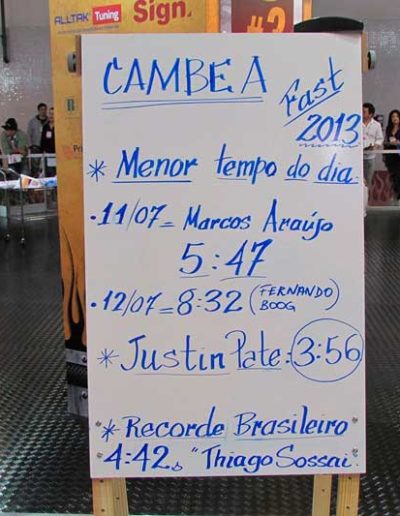 ALLTAK Tuning
Sign.
#3
CAMBEA
Fast
2013
* Menor tempo do dia.
·11/07= Marcos Araújo
5:47
·12/07=8:32 (FERNANDO BOOG)
* Justin Pate: 3:56
* Recorde Brasileiro
4:42 "Thiago Sossai.